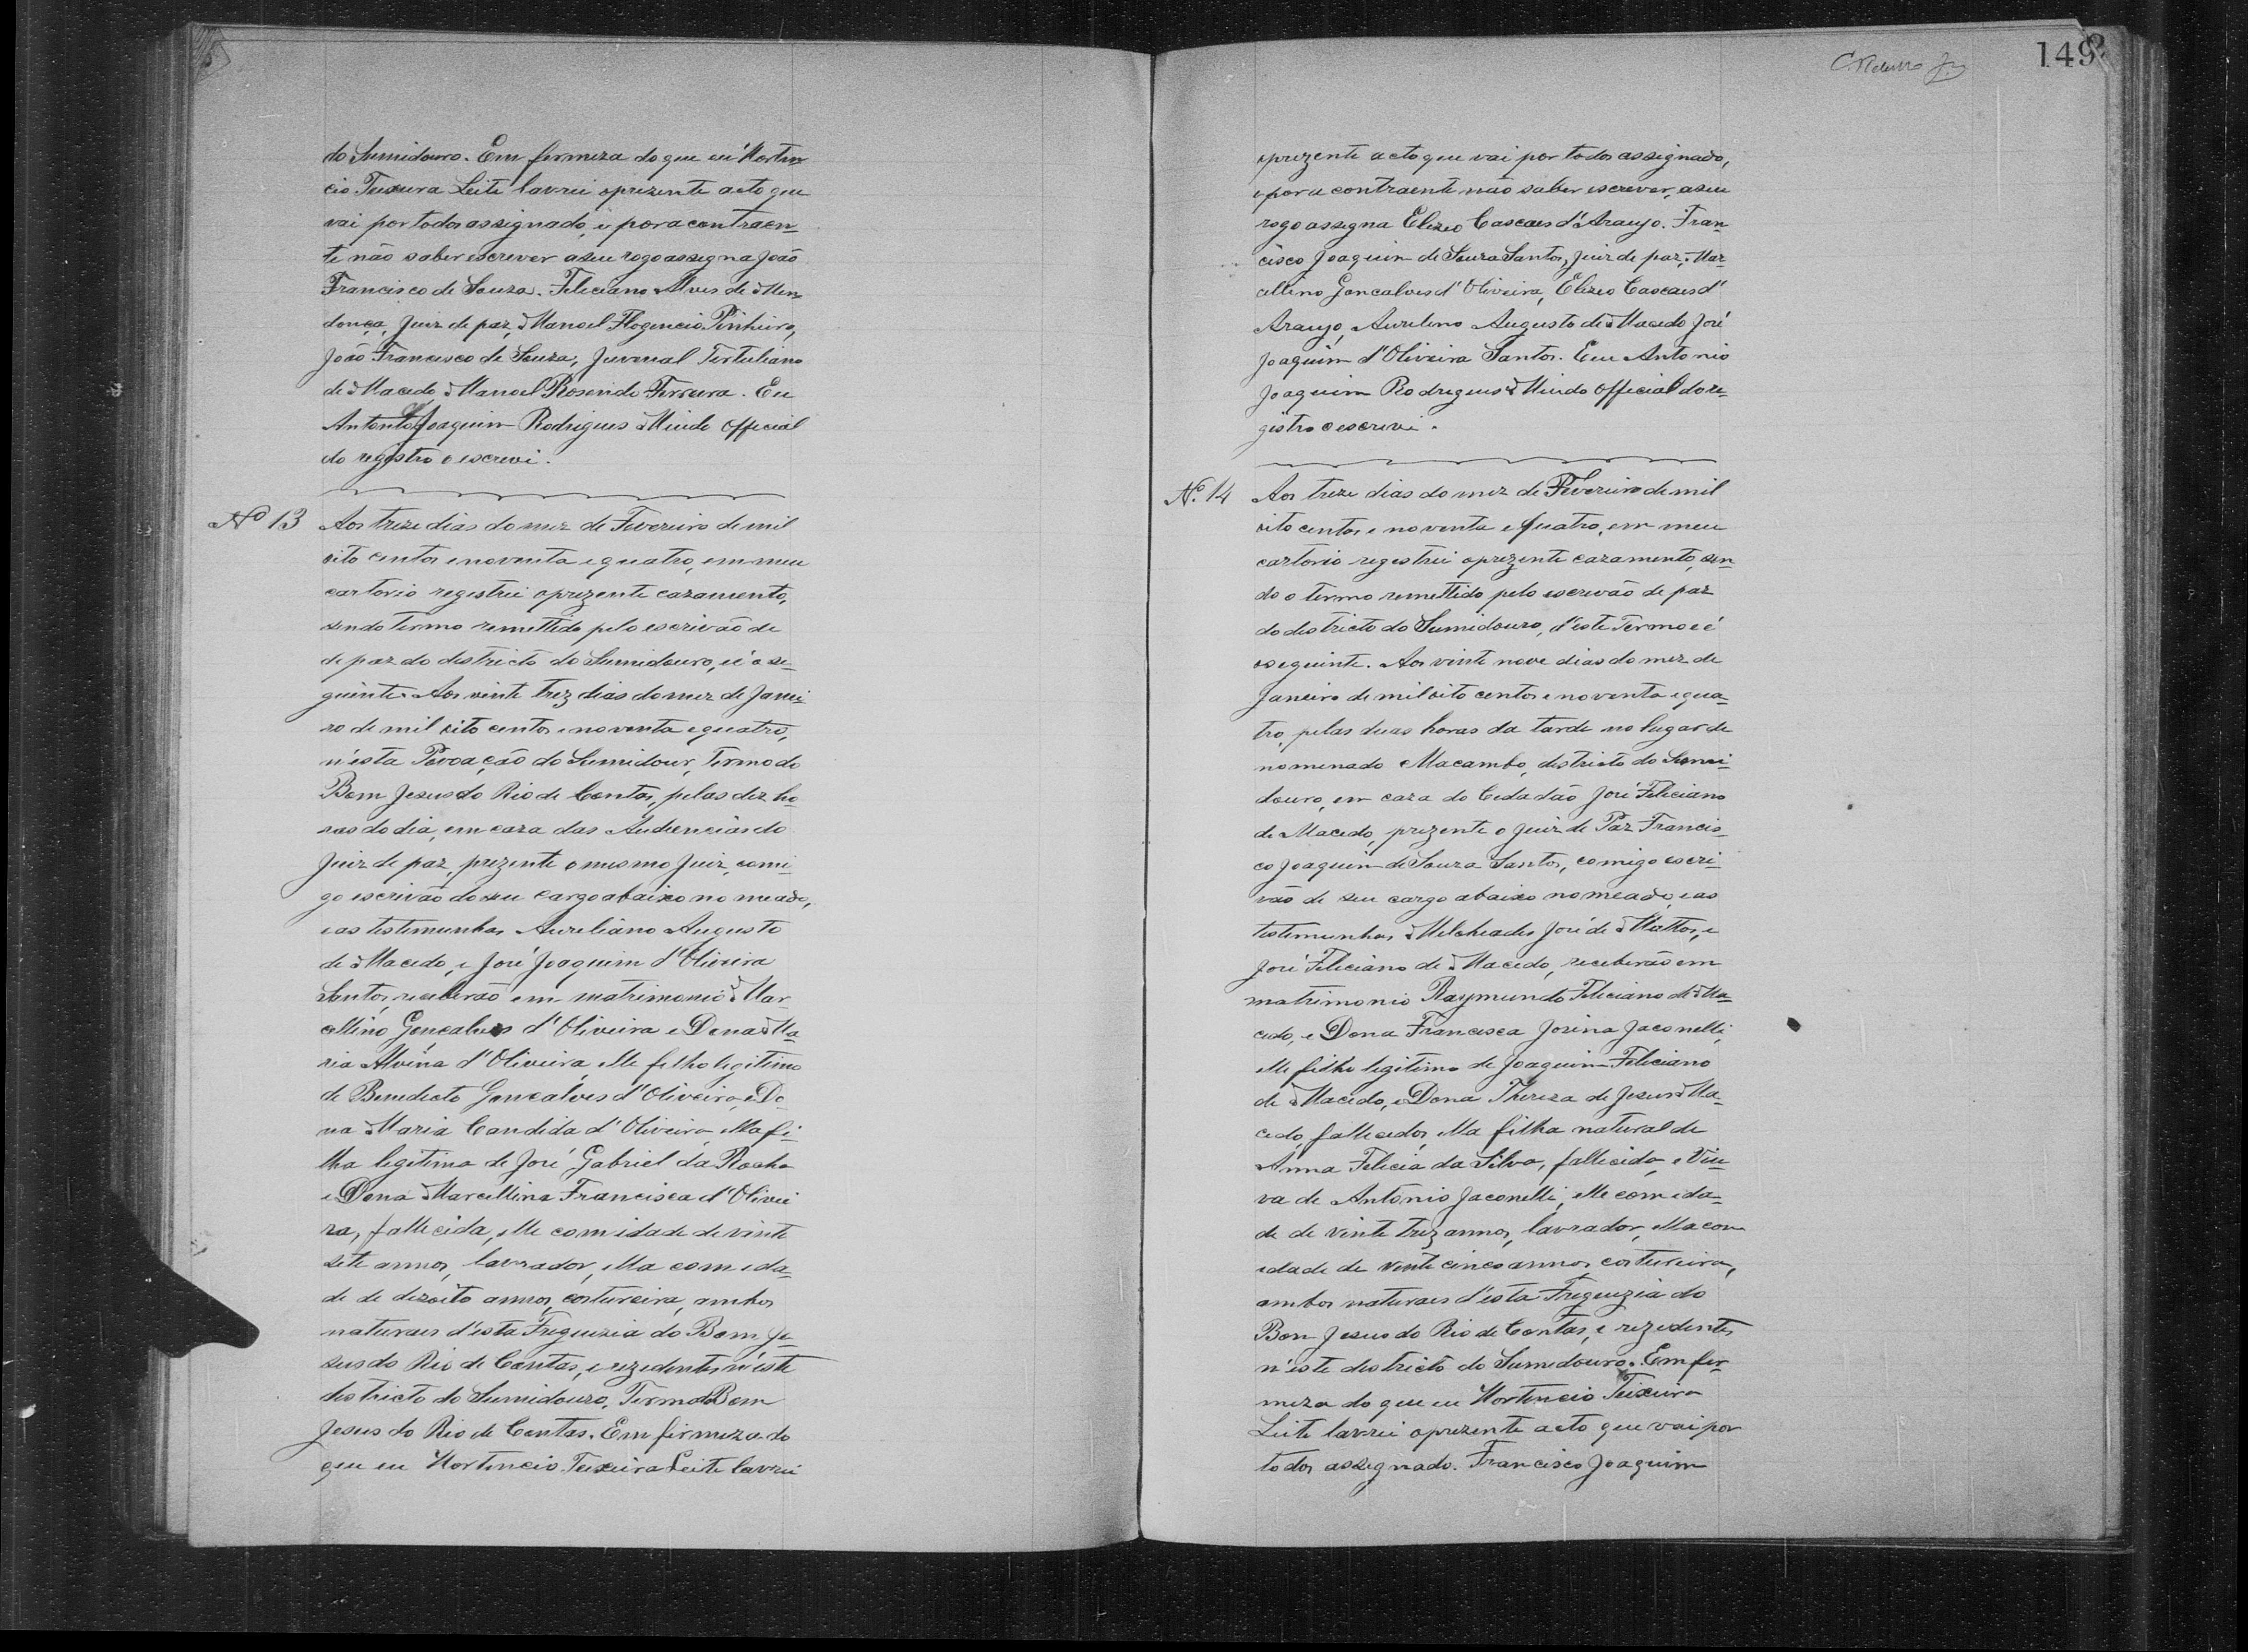 do Sumidouro. Em firmeza do que eu Horten
cio Teixeira Leite lavrei o prezente acto que
vai por todos assignado, e por a contraen-
te não saber escrever a seu rogo assigna João
Francisco de Souza. Feliciano Alves de Men
donça, Juiz de paz, Manoel Flogencio Pinheiro,
João Francisco de Souza, Juvenal Tertuliano
de Macedo, Manoel Rosendo Ferreira. Eu
Antonio Joaquim Rodrigues Minde official
do registro o escrevi.
Nº 13 Aos treze dias do mez de Fevereiro de mil
oito centos e noventa e quatro, em meu
cartorio registrei o prezente cazamento,
sendo termo remettido pelo escrivão de
de paz do districto do Sumidouro, e é o se-
guinte. Aos vinte trez dias do mez de Janei-
ro de mil oito centos e noventa e quatro,
n'esta Povoação do Sumidour, Termo do
Bom Jesus do Rio de Contas, pelas dez ho-
ras do dia, em caza das Audiencias do
Juiz de paz, prezente o mesmo Juiz, comi-
go escrivão do seu cargo abaixo no meado,
e as testemunhas Aureliano Augusto
de Macedo, e José Joaquim d'Oliveira
Santos, receberão em matrimonio Mar
cellino Gonçalves d'Oliveira e Dona Ma-
ria Alvina d'Oliveira, elle filho legitimo
de Benedicto Gonçalves d'Oliveira, e Do-
na Maria Candida d'Oliveira, ella fi-
lha legitima de José Gabriel da Rocha
e Dona Marcellina Francisca d'Olivei
ra, fallecida, elle com idade de vinte
sete annos, lavrador, ella com ida-
de de dezoito annos, costureira, ambos
naturaes d'esta Freguezia do Bom Je-
sus do Rio de Contas, e rezedentes n'este
districto do Sumidouro, Termo do Bom
Jesus do Rio de Contas. Em firmeza do
que eu Hortencio Teixeira Leite lavrei
149
o prezente acto que vai por todos assignado,
e por a contraente não saber escrever, a seu
rogo assigna Elizeo Cascaes d'Araujo. Fran-
cisco Joaquim de Souza Santos, Juiz de paz, Mar-
cellino Goncalves d'Oliveira, Elizeo Cascaes d'
Araujo, Aurelino Augusto de Macedo José
Joaquim d'Oliveira Santos. Eu Antonio
Joaquim Rodrigues Minde Official do re-
gistro o escrevi.
Nº. 14 Aos treze dias do mez de Fevereiro de mil
oito centos e noventa e quatro, em meu
cartorio registrei o prezente cazamento, sen-
do o termo remettido pelo escrivão de paz
do districto do Sumidouro, d'este Termo e é
o seguinte. Aos vinte nove dias do mez de
Janeiro de mil oito centos e noventa e qua-
tro, pelas duas horas da tarde no lugar de
nomenado Macambo, districto do Sumi-
douro, em caza do Cedadão José Feliciano
de Macedo, prezente o Juiz de Paz Francis-
co Joaquim de Souza Santos, comigo escri-
vão de seu cargo abaixo nomeado, e as
testemunhas Melcheades José de Mattos, e
José Feliciano de Macedo, receberão em
matrimonio Raymundo Feliciano de Ma-
cedo, e Dona Francisca Jozina Jaconelli,
elle filho legitimo de Joaquim Feliciano
de Macedo, e Dona Thereza de Jesus Ma-
cedo, fallecidos, ella filha natural de
Anna Felicia da Silva, fallecida, e Viu-
va de Antonio Jaconelli, elle com ida-
de de vinte trez annos, lavrador, ella com
idade de vinte cinco annos, costureira,
ambos naturaes d'esta Freguezia do
Bom Jesus do Rio de Contas, e rezedentes
n'este districto do Sumedouro. Em fer-
meza do que eu Hortencio Teixeira
Leite lavrei o prezente acto que vai por
todos assignado. Francisco Joaquim